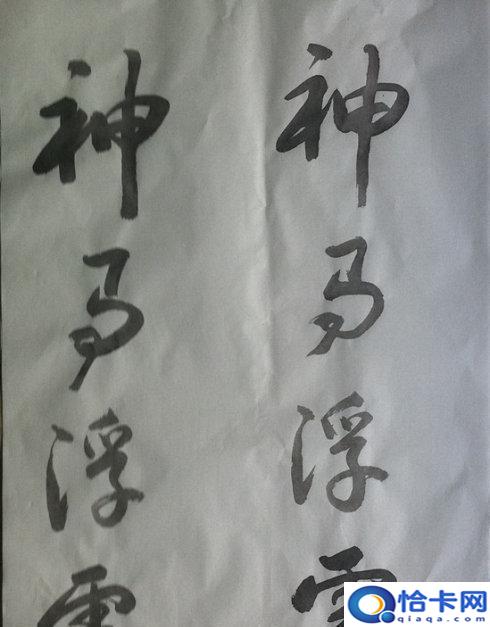 神马浮雲
神马浮雲
恰卡网
qiaqa.com